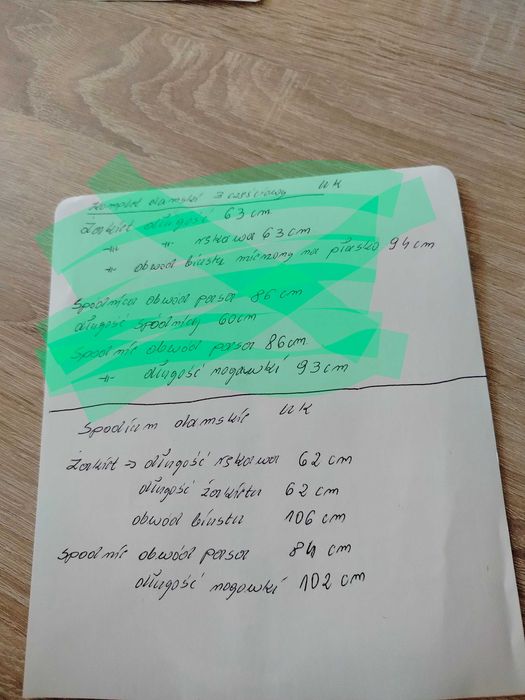 Komplet damski 3 częściowy UK
Żakiet długość 63 cm
-||- -||- rękawa 63 cm
-||- obwód biustu mierzony na płasko 94 cm
Spódnica obwód pasa 86 cm
długość spódnicy 60 cm
Spodnie obwód pasa 86 cm
-||- długość nogawki 93 cm
Spodium damskie UK
Żakiet → długość rękawa 62 cm
długość żakietu 62 cm
obwód biustu 106 cm
Spodnie obwód pasa 84 cm
długość nogawki 102 cm